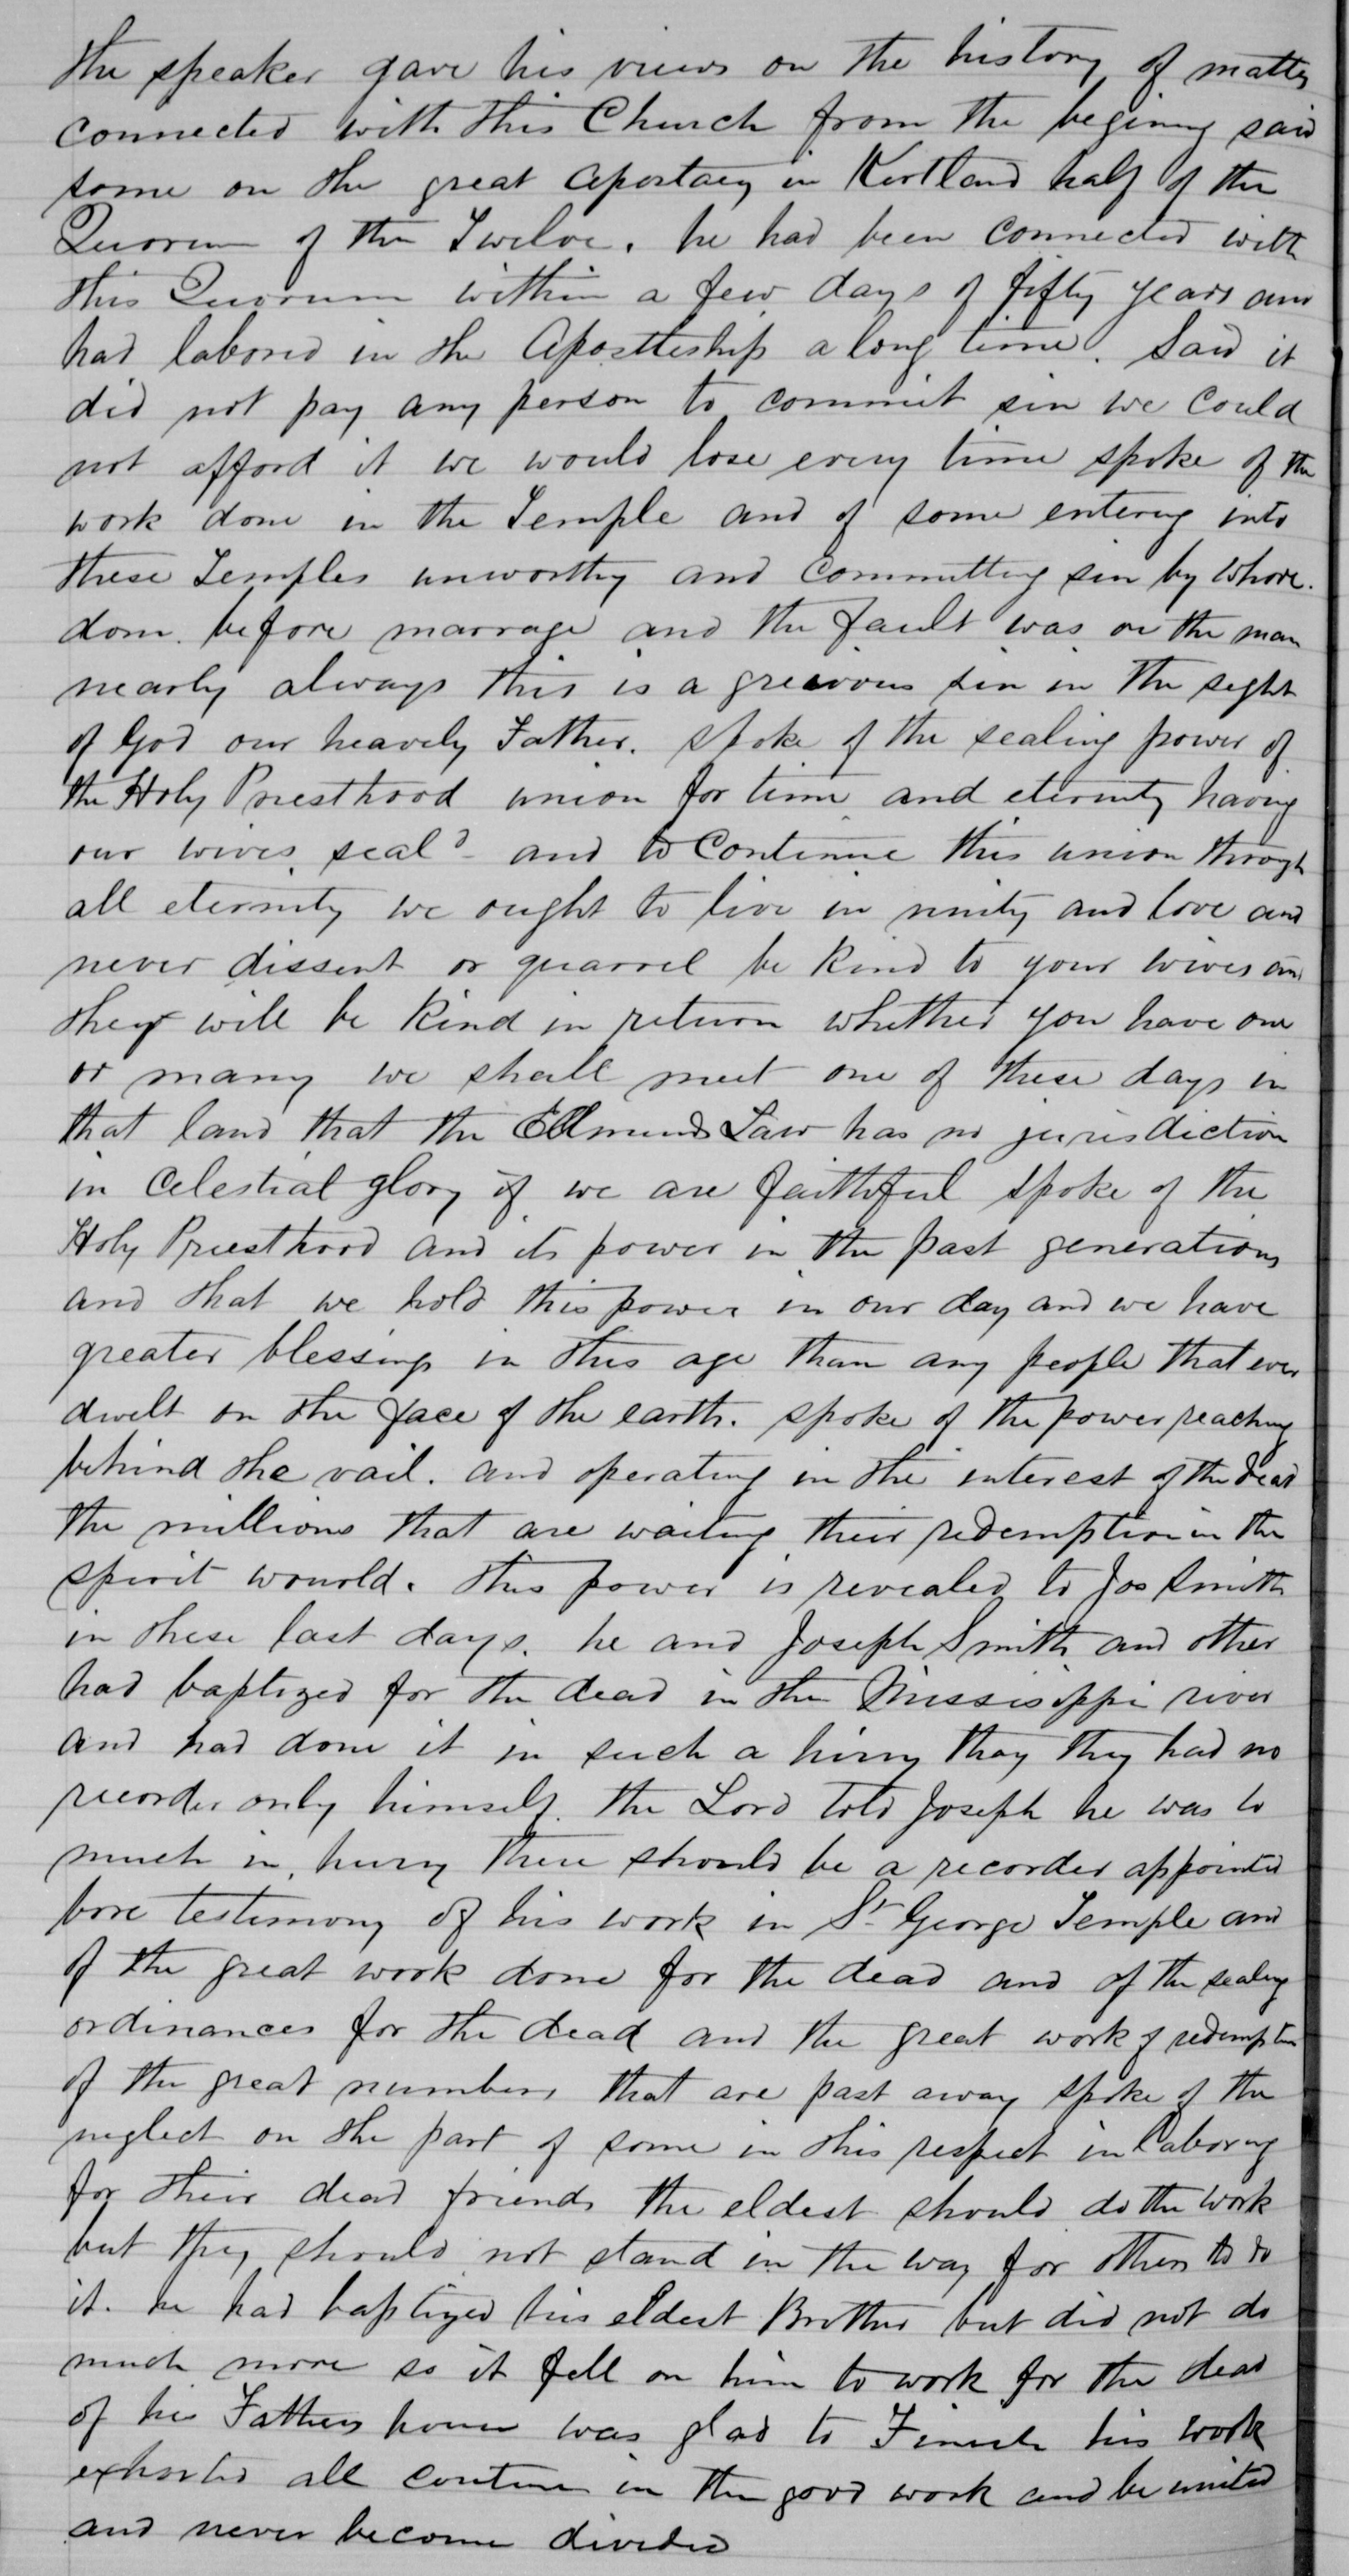 the speaker gave his views on the history of matters
connected with this Church from the begining said
some on the great apostacy in Kirtland half of the
Quorum of the Twelve. he had been connected with
this Quorum within a few days of fifty years and
had labored in the Apostleship a long time. Said it
did not pay any person to commit sin we could
not afford it we would lose every time spoke of the
work done in the Temple and of some entering into
these Temples unworthy and committing sin by whore-
dom. before marrage and the fault was on the man
nearly always this is a greivous sin in the sight
of God our heavely Father. spoke of the sealing power of
the Holy Priesthood union for time and eternity having
our wives seald and to Continue this union through
all eternity we ought to live in unity and love and
never dissent or quarrel be kind to your wives and
they will be kind in return whether you have one
or many we shall meet one of these days in
that land that the Edmunds Law has no jurisdiction
in Celestial glory if we are faithful spoke of the
Holy Priesthood and its power in the past generations
and that we hold this power in our day and we have
greater blessings in this age than any people that ever
dwelt on the face of the earth. spoke of the power reaching
behind the vail. and operating in the interest of the dead
the millions that are waiting their redemption in the
spirit wourld. this power is revealed to Jos Smith
in these last days. he and Joseph Smith and other
had baptized for the dead in the Mississippi river
and had done it in such a hurry thay they had no
recorder only himself. the Lord told Joseph he was to
much in hurry there should be a recorder appointed
bore testimony of his work in St George Temple and
of the great work done for the dead and of the sealing
ordinances for the dead and the great work of redemption
of the great numbers that are past away spoke of the
neglect on the part of some in this respect in laboring
for their dead friends the eldest should do the work
but they should not stand in the way for others to do
it. he had baptized his eldest Brother but did not do
much more so it fell on him to work for the dead
of his Fathers house was glad to Finish his work
exhorted all continue in the good work and be united
and never become divided